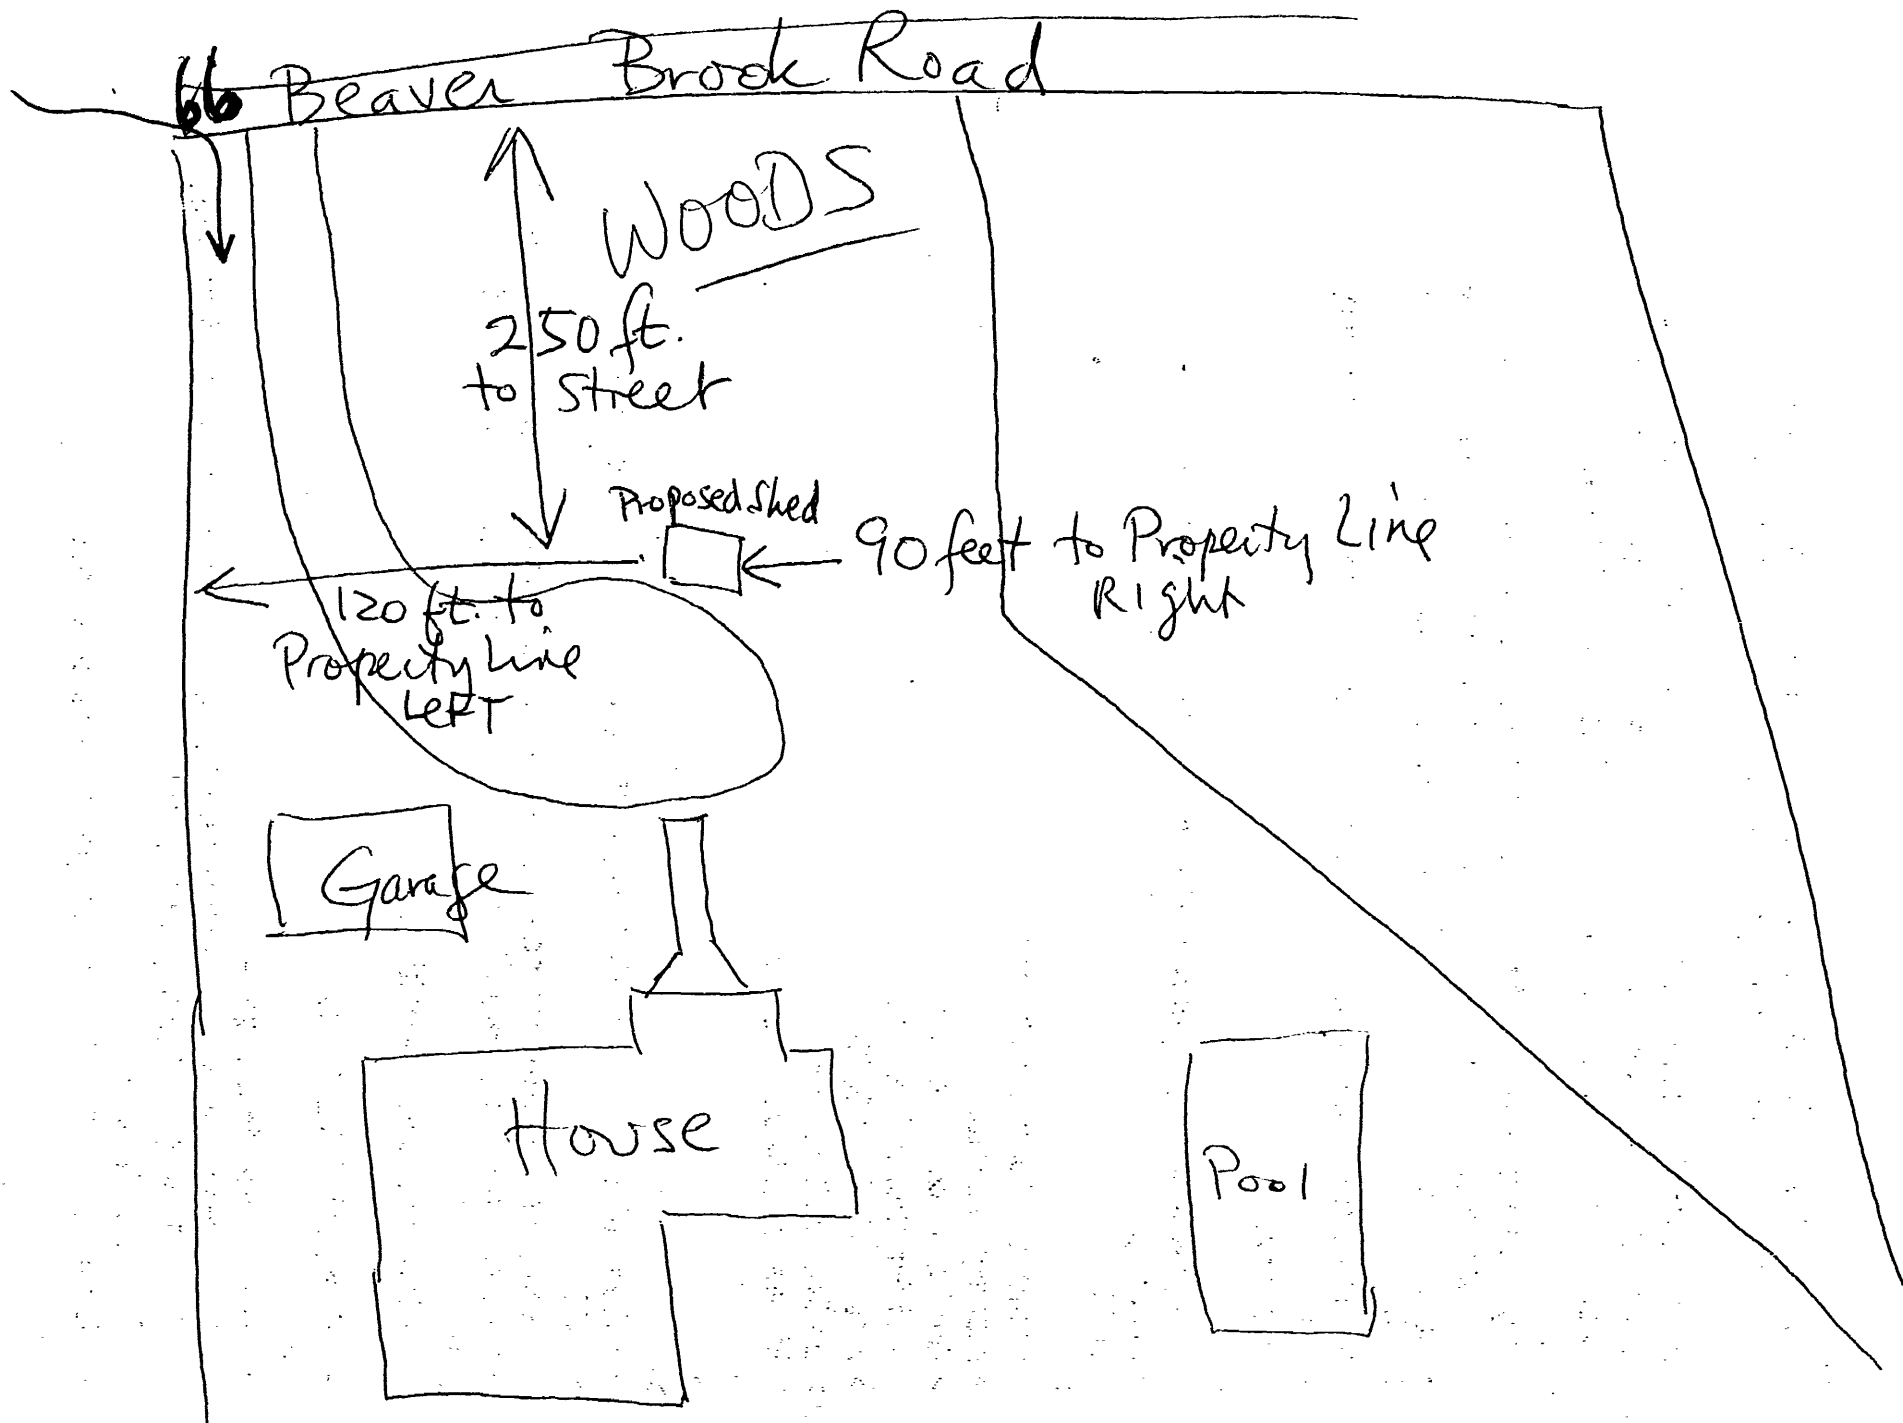 66 Beaver Brook Road
WOODS
250 ft.
to Street
Proposed Shed
90 feet to Property Line
Right
120 ft. to
Property Line
LEFT
Garage
House
Pool